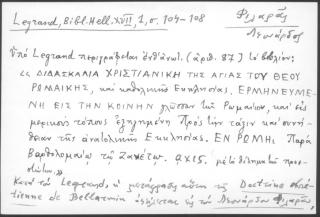 Legrand, Bibl. Hell. XVII, 1, σ. 104-108
Φιλαρᾶς
Λεονάρδος
Ὑπὸ Legrand περιγράφεται (ἀριθ. 87) τὸ βιβλίον:
«ΔΙΔΑΣΚΑΛΙΑ ΧΡΙΣΤΙΑΝΙΚΗ ΤΗΣ ΑΓΙΑΣ ΤΟΥ ΘΕΟΥ
ΡΩΜΑΪΚΗΣ, καὶ καθολικῆς Ἐκκλησίας. ΕΡΜΗΝΕΥΜΕ-
ΝΗ ΕΙΣ ΤΗΝ ΚΟΙΝΗΝ γλῶσσαν τῶν Ῥωμαίων, καὶ εἰς
μερικοὺς τόπους ἐξηγημένη Πρὸς τὴν τάξιν καὶ συνή-
θειαν τῆς ἀνατολικῆς Ἐκκλησίας. ΕΝ ΡΩΜῌ Παρὰ
Βαρθολομαίῳ τῷ Ζανέτῳ. αχιε. μετὰ θελήματος προε-
στώτων.»
Κατὰ τὸν Legrand, ἡ μετάφρασις αὕτη τῆς Doctrina chré-
tienne de Bellarmin ὀφείλεται εἰς τὸν Λεονάρδον Φιλαρᾶν,